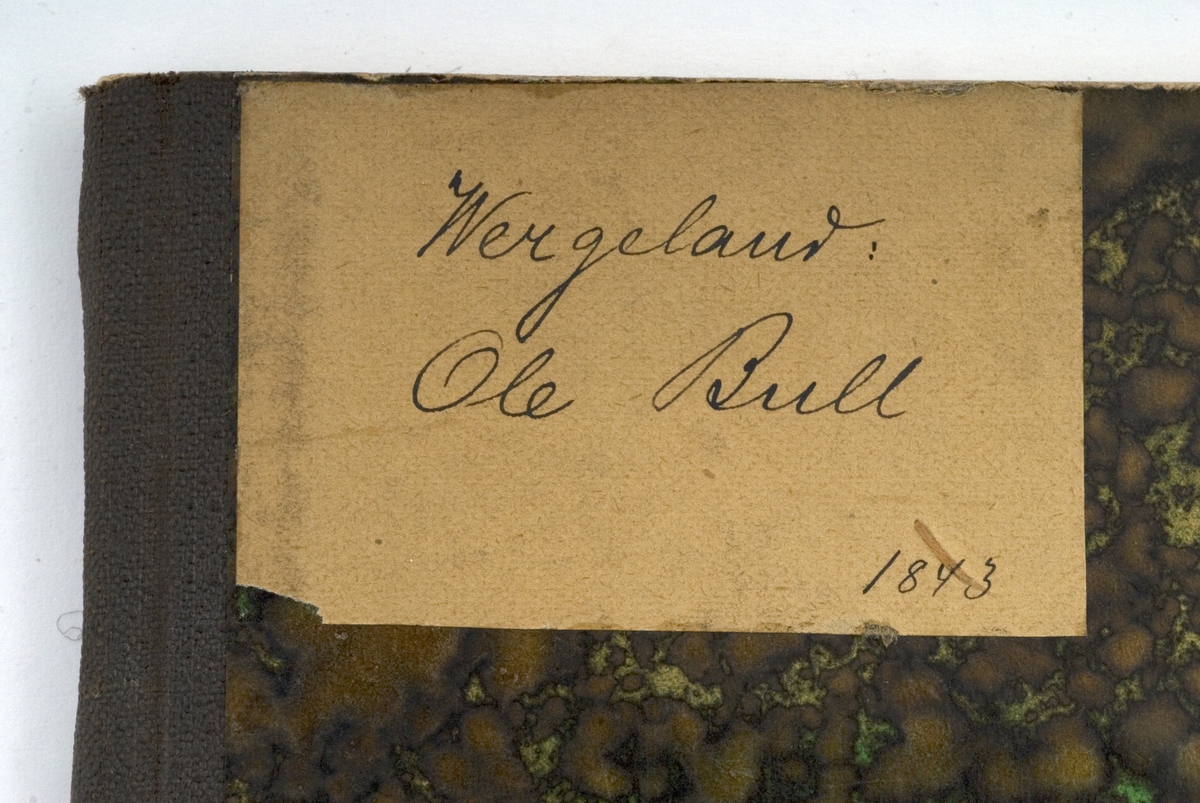 Wergeland:
Ole Bull
1843